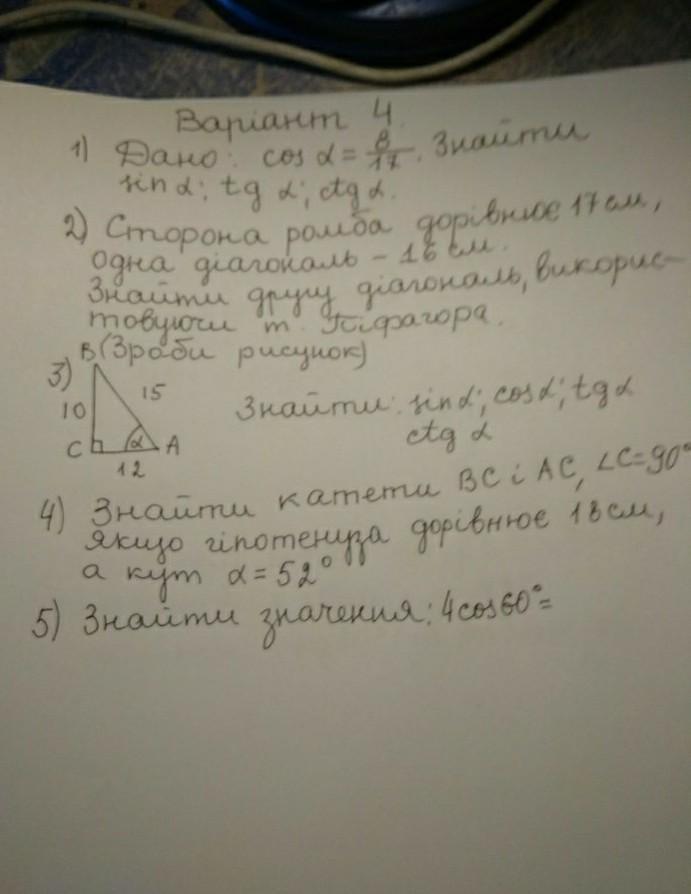 Варіант 4.
1) Дано: cos α = 8/17. Знайти
sin α; tg α; ctg α.
2) Сторона ромба дорівнює 17 см,
одна діагональ – 16 см.
Знайти другу діагональ, викорис-
товуючи т. Піфагора.
(Зроби рисунок)
3) B
10 15
C α A
12
Знайти: sin α; cos α; tg α
ctg α
4) Знайти катети BC і AC, ∠C=90°
якщо гіпотенуза дорівнює 18 см,
а кут α = 52°
5) Знайти значення: 4cos60°=